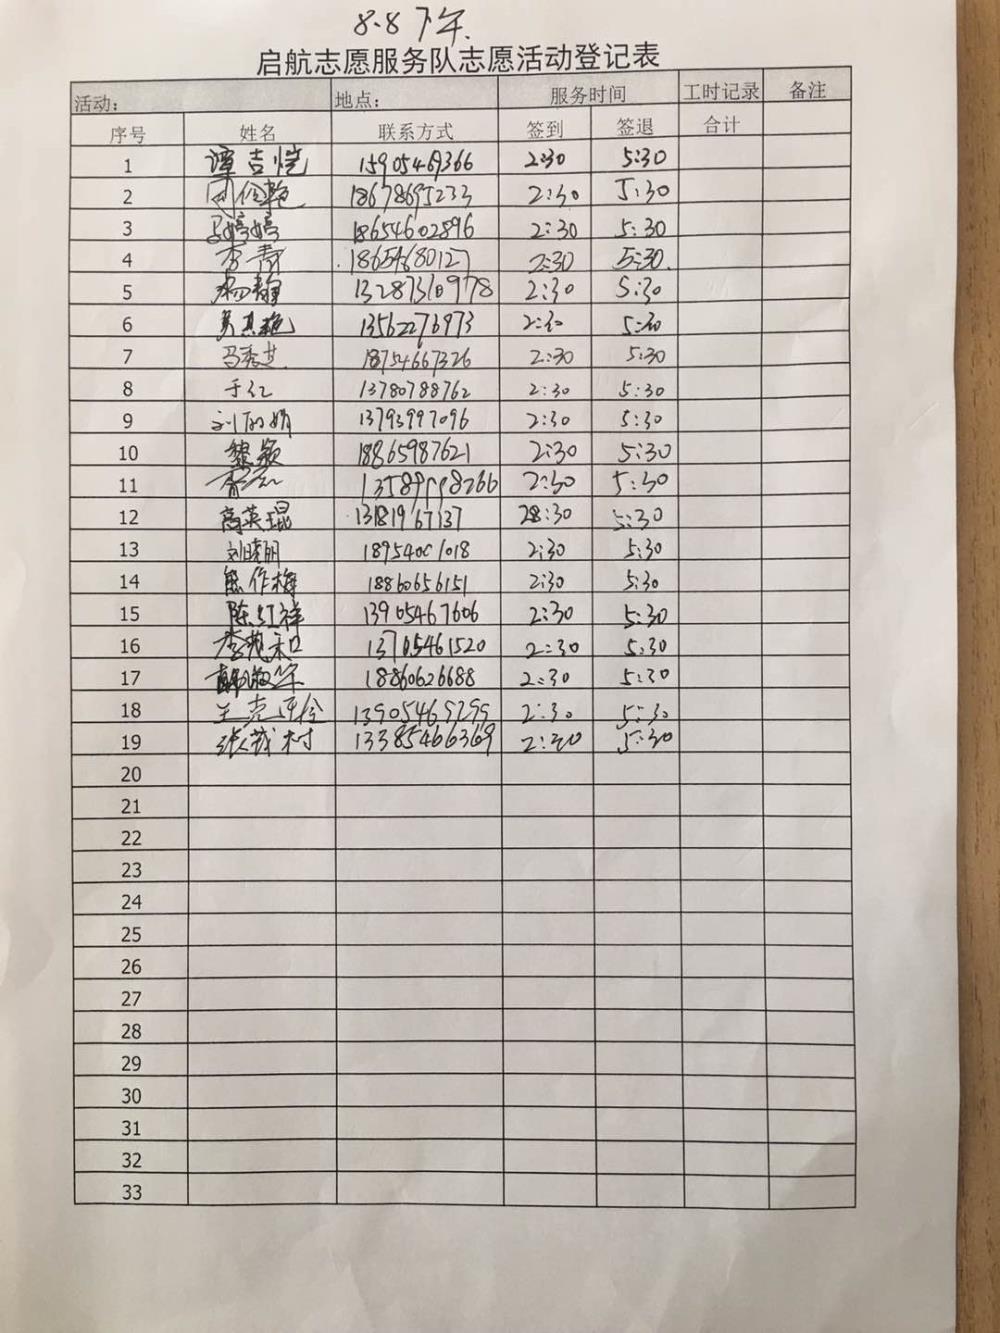 8.8下午
启航志愿服务队志愿活动登记表
活动： 地点： 服务时间 工时记录 备注
序号 姓名 联系方式 签到 签退 合计
1 谭吉恺 15905469366 2:30 5:30
2 18678695233 2:30 5:30
3 马婷婷 18654602896 2:30 5:30
4 李青 18654680127 2:30 5:30
5 杨静 13287310978 2:30 5:30
6 13562276973 2:30 5:30
7 马秀芝 18754667326 2:30 5:30
8 于红 13780788762 2:30 5:30
9 刘丽娟 13793997096 2:30 5:30
10 黎颖 18865987621 2:30 5:30
11 2:30 5:30
12 高英琨 13181967137 28:30 5:30
13 刘晓朋 18954001018 2:30 5:30
14 熊作梅 18860656151 2:30 5:30
15 陈红祥 13905467606 2:30 5:30
16 13705461520 2:30 5:30
17 18860626688 2:30 5:30
18 2:30 5:30
19 13385466369 2:30 5:30
20
21
22
23
24
25
26
27
28
29
30
31
32
33